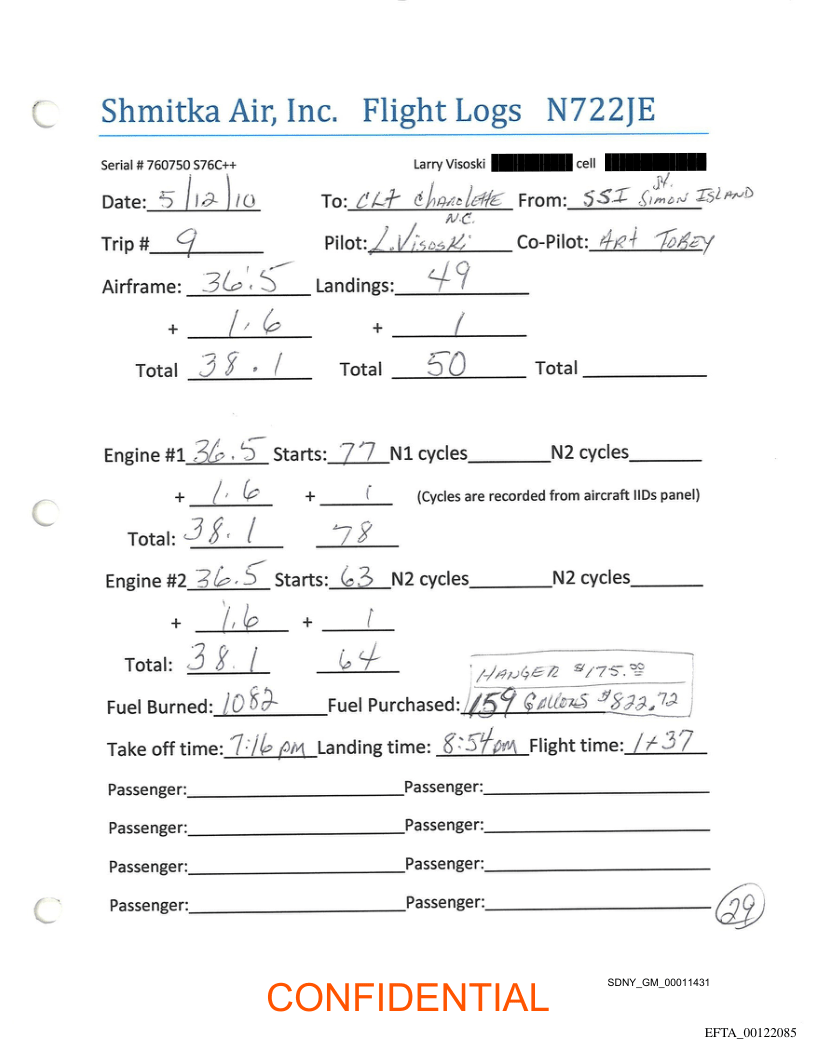 Shmitka Air, Inc. Flight Logs N722JE
Serial # 760750 S76C++ Larry Visoski cell
Date: 5/12/10 To: CLT CharlETTE N.C. From: SSI St. Simon ISLAND
Trip # 9 Pilot: L.Visoski Co-Pilot: ART TOBEY
Airframe: 36.5 Landings: 49
+ 1.6 + 1
Total 38.1 Total 50 Total
Engine #1 36.5 Starts: 77 N1 cycles N2 cycles
+ 1.6 + 1 (Cycles are recorded from aircraft IIDs panel)
Total: 38.1 78
Engine #2 36.5 Starts: 63 N2 cycles N2 cycles
+ 1.6 + 1
Total: 38.1 64
HANGER $175.00
Fuel Burned: 1082 Fuel Purchased: 159 Gallons $822.72
Take off time: 7:16 pm Landing time: 8:54pm Flight time: 1+37
Passenger: Passenger:
Passenger: Passenger:
Passenger: Passenger:
Passenger: Passenger:
29
SDNY_GM_00011431
CONFIDENTIAL
EFTA_00122085